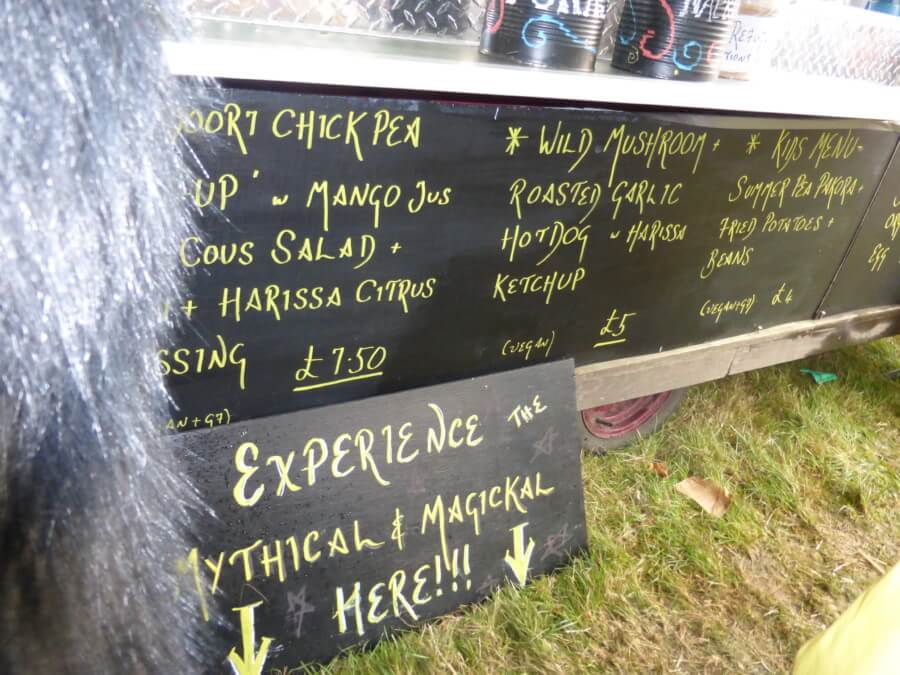 OORI CHICKPEA
UP' w MANGO JUS
COUS SALAD +
+ HARISSA CITRUS
SSING £7.50
AN + GF)
* WILD MUSHROOM +
ROASTED GARLIC
HOTDOG w HARISSA
KETCHUP
(VEGAN) £5
* KIDS MENU -
SUMMER PEA PAKORA +
FRIED POTATOES +
BEANS
(VEGAN + GF) £4
EGG
EXPERIENCE THE
MYTHICAL & MAGICKAL
HERE!!!